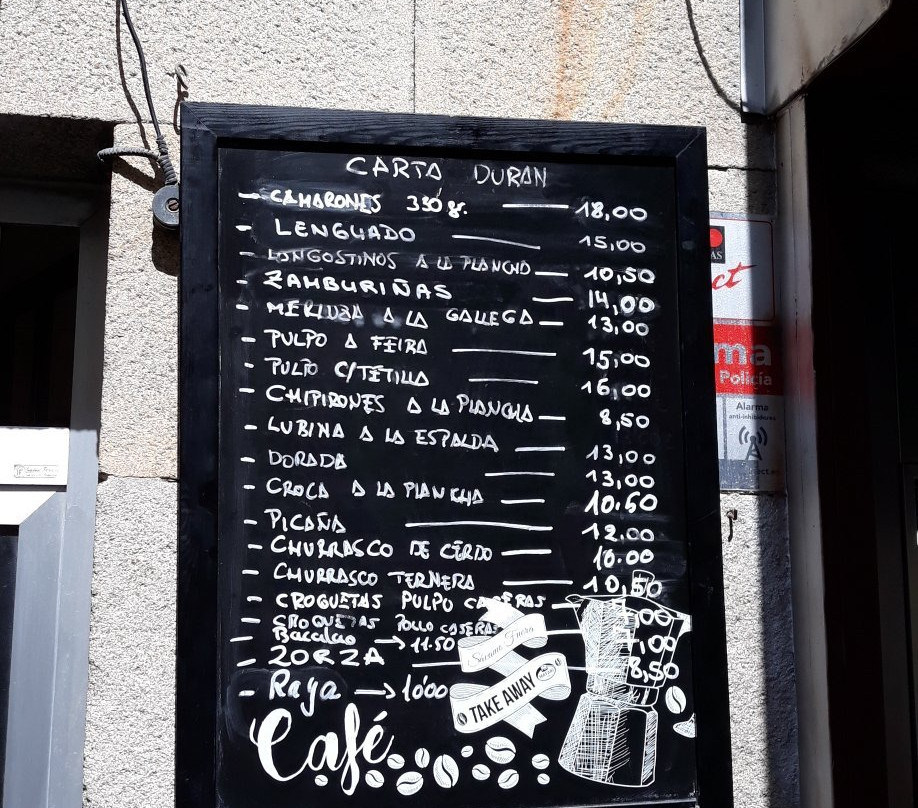 CARTA DURAN
- CAMARONES 350 gr. — 18,00
- LENGUADO — 15,00
- LANGOSTINOS A LA PLANCHA — 10,50
- ZAMBURIÑAS — 14,00
- MERLUZA A LA GALLEGA — 13,00
- PULPO A FEIRA — 15,00
- PULPO C/TETILLA — 16,00
- CHIPIRONES A LA PLANCHA — 8,50
- LUBINA A LA ESPALDA — 13,00
- DORADA — 13,00
- CROCA A LA PLANCHA — 10.50
- PICAÑA — 12,00
- CHURRASCO DE CERDO — 10.00
- CHURRASCO TERNERA — 10,50
- CROQUETAS PULPO CASERAS — ,00
- CROQUETAS POLLO CASERAS ,00
- Bacalao → 11.50
- ZORZA — 8,50
- Raya → 10'00
TAKE AWAY
Café
AS
ct
ma
Policía
Alarma
anti-inhibidores